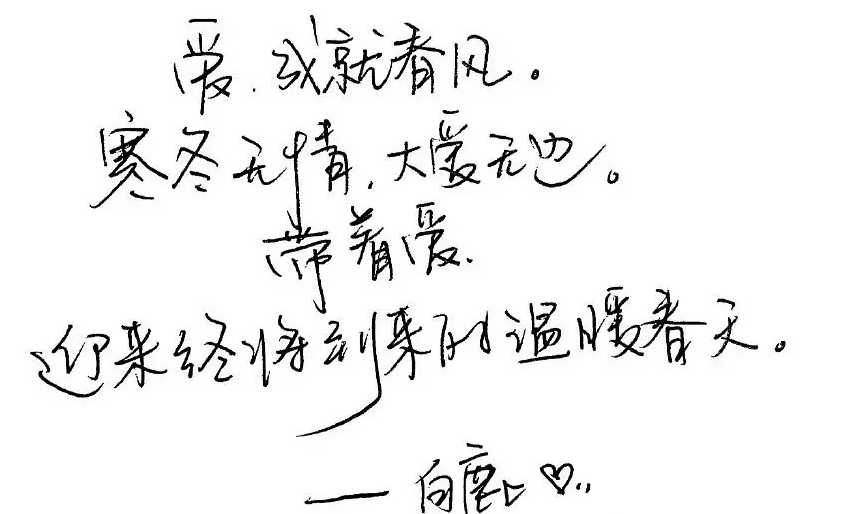 爱,成就春风。
寒冬无情,大爱无边。
带着爱.
迎来终将到来的温暖春天。
—— 白鹿 ♡..